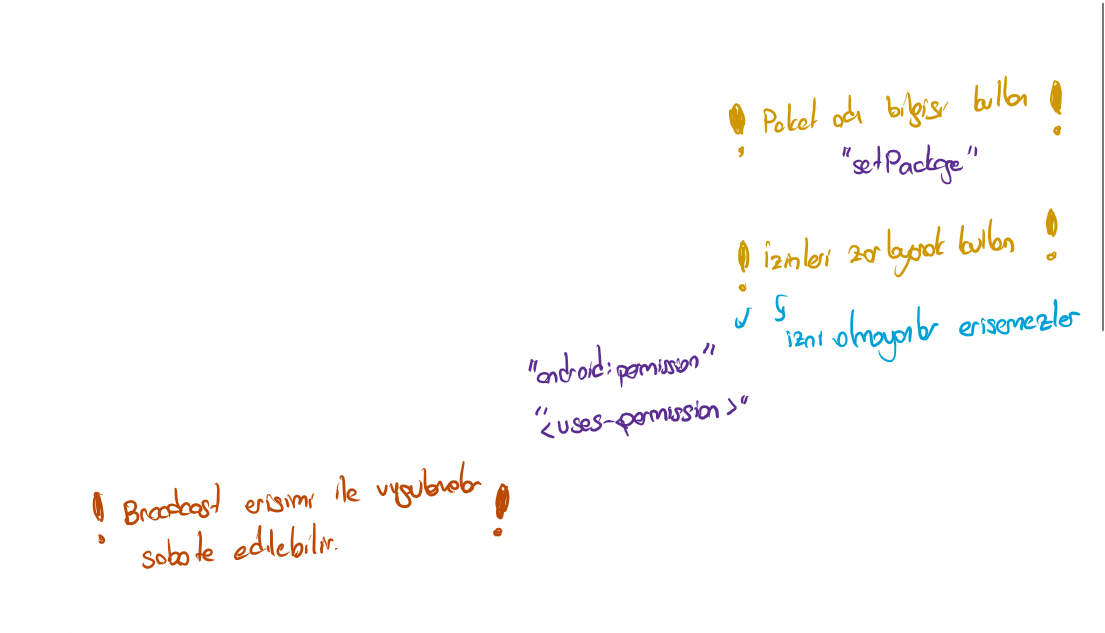 ! Paket adı bilgisi kullan !
"setPackage"
! İzinleri zorlayarak kullan !
izni olmayanlar erisemezler
"android:permission"
"<uses-permission>"
! Broadcast erisimi ile uygulamalar !
sabote edilebilir.